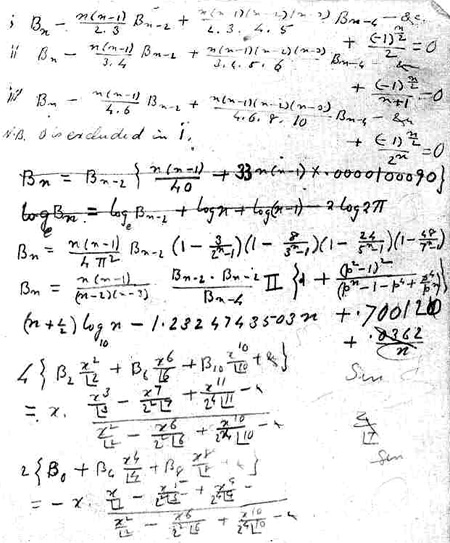 i B_n - n(n-1)/2.3 B_{n-2} + n(n-1)(n-2)(n-3)/2.3.4.5 B_{n-4} - &c.
+ (-1)^{n/2}/2 = 0
ii B_n - n(n-1)/3.4 B_{n-2} + n(n-1)(n-2)(n-3)/3.4.5.6 B_{n-4} - &c
+ (-1)^{n/2}/(n+1) = 0
iii B_n - n(n-1)/4.6 B_{n-2} + n(n-1)(n-2)(n-3)/4.6.8.10 B_{n-4} - &c
+ (-1)^{n/2}/2^n = 0
N.B. 0 is excluded in i.
B_n = B_{n-2} { n(n-1)/40 + 33 n(n-1) × .0000100090 }
log_e B_n = log_e B_{n-2} + log n + log(n-1) - 2 log 2π
B_n = n(n-1)/4π² B_{n-2} (1 - 3/(2^n-1))(1 - 8/(3^n-1))(1 - 24/(5^n-1))(1 - 48/(7^n-1))
B_n = n(n-1)/(n-2)(n-3) B_{n-2}.B_{n-2}/B_{n-4} Π { 1 + (p²-1)²/
(n+½) log_10 n - 1.2324743503 n + .700120
+ .0362/n
4 { B_2 x²/|2 + B_6 x^6/|6 + B_10 x^10/|10 + &c }
= x. (x³/|3 - x^7/2²|7 + x^11/2^4|11 - &c)/(x²/|2 - x^6/2²|6 + x^10/2^4|10 - &c)
2 { B_0 + B_4 x^4/|4 + B_8 x^8/|8 + &c }
= - x. (x/|1 - x^5/2²|5 + x^9/2^4|9 -)/(x²/|2 - x^6/2²|6 + x^10/2^4|10 - &c)
Sin
Sin